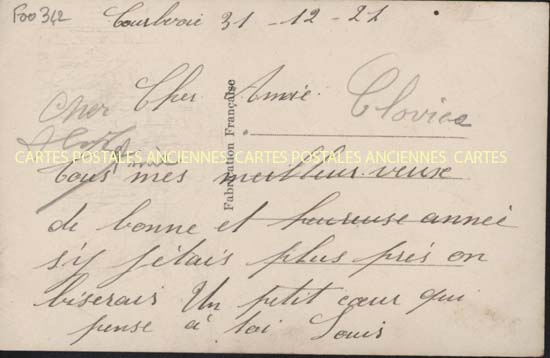 Foo 342
Courbevoie 31 - 12 - 21
Cher Amie
Clovice
Cher
Fabrication Française
CARTES POSTALES ANCIENNES CARTES POSTALES ANCIENNES CARTES
Tous mes meilleur veuse
de bonne et heureuse année
s'y j'étais plus près on
biserais Un petit cœur qui
pense a toi Louis